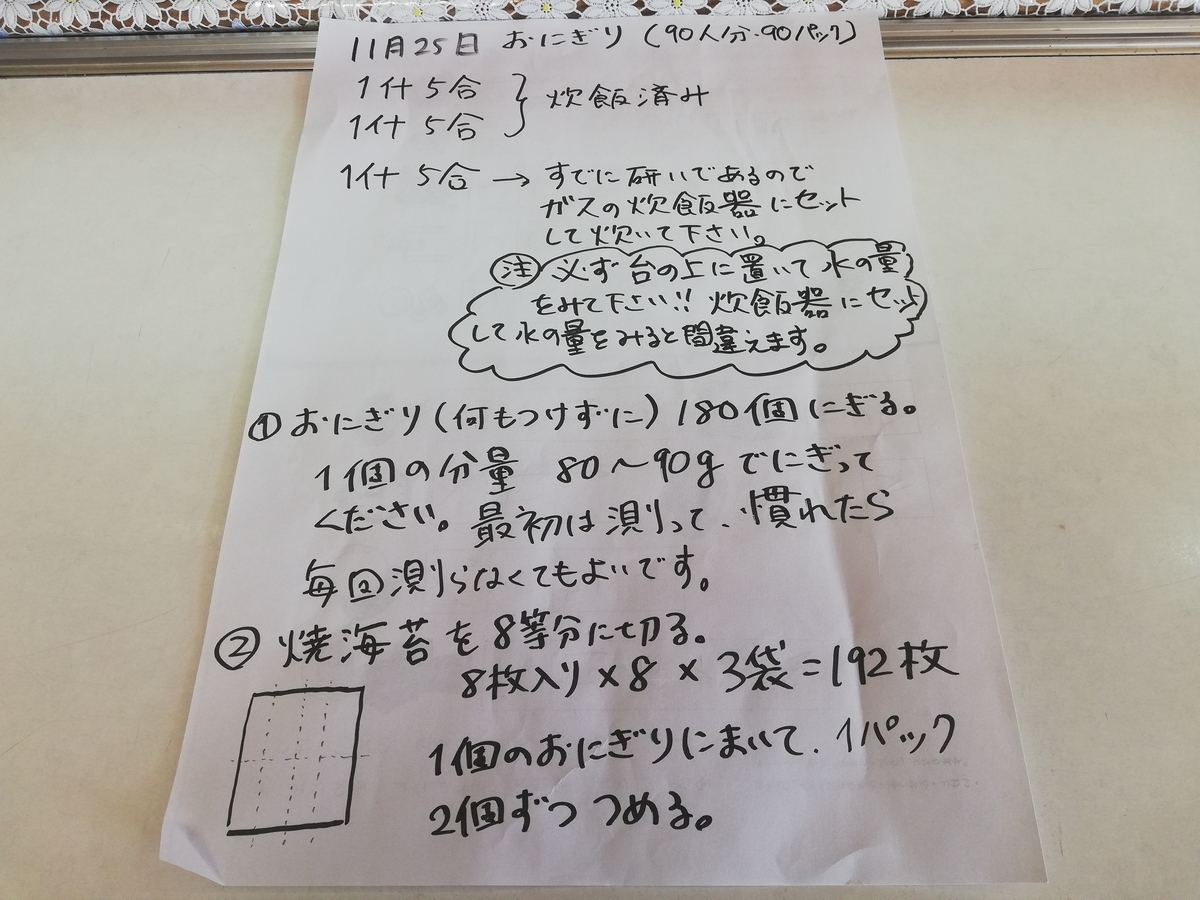 11月25日 おにぎり (90人分・90パック)
1升5合
1升5合 } 炊飯済み
1升5合 → すでに研いであるので
ガスの炊飯器にセット
して炊いて下さい。
注 必ず台の上に置いて水の量
をみて下さい!! 炊飯器にセット
して水の量をみると間違えます。
① おにぎり(何もつけずに) 180個にぎる。
1個の分量 80〜90g でにぎって
ください。最初は測って、慣れたら
毎回測らなくてもよいです。
② 焼海苔を8等分に切る。
8枚入り×8×3袋=192枚
1個のおにぎりにまいて、1パック
2個ずつつめる。